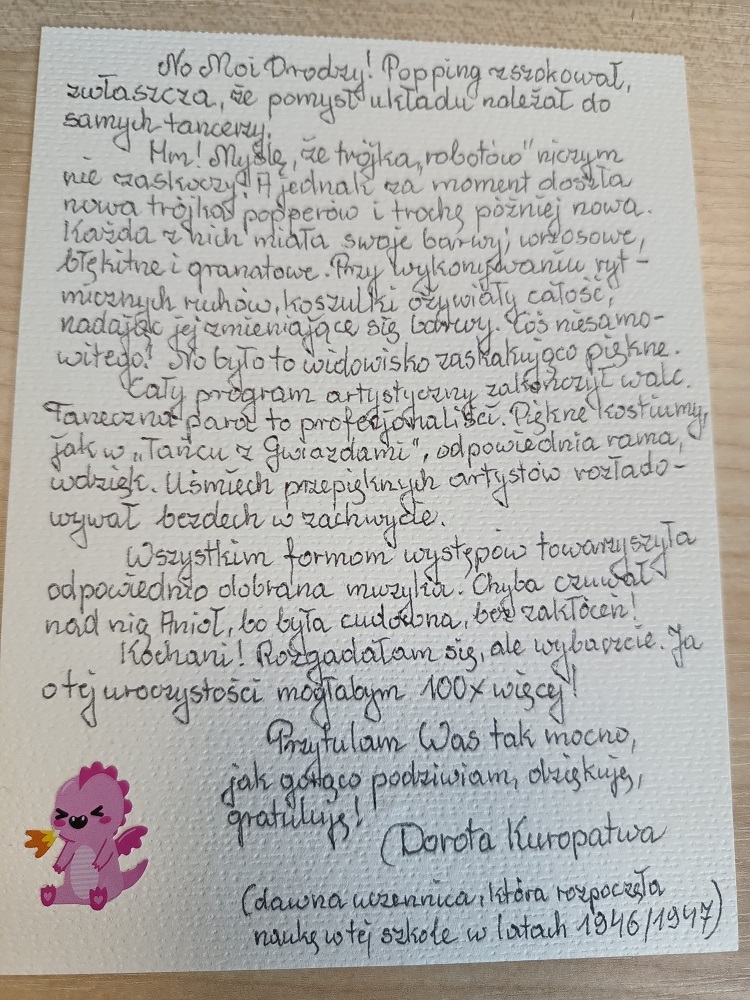 No Moi Drodzy! Popping zszokował,
zwłaszcza, że pomysł układu należał do
samych tancerzy.
Hm! Myślę, że trójka „robotów" niczym
nie zaskoczy! A jednak za moment doszła
nowa trójka popperów i trochę później nowa.
Każda z nich miała swoje barwy; wrzosowe,
błękitne i granatowe. Przy wykonywaniu ryt-
micznych ruchów, koszulki ożywiały całość,
nadając jej zmieniające się barwy. Coś niesamo-
witego! No było to widowisko zaskakująco piękne.
Cały program artystyczny zakończył walc.
Taneczna para to profesjonaliści. Piękne kostiumy,
jak w „Tańcu z Gwiazdami", odpowiednia rama,
wdzięk. Uśmiech przepięknych artystów rozłado-
wywał bezdech w zachwycie.
Wszystkim formom występów towarzyszyła
odpowiednio dobrana muzyka. Chyba czuwał
nad nią Anioł, bo była cudowna, bez zakłóceń!
Kochani! Rozgadałam się, ale wybaczcie. Ja
o tej uroczystości mogłabym 100x więcej!
Przytulam Was tak mocno,
jak gorąco podziwiam, dziękuję,
gratuluję!
Dorota Kuropatwa
(dawna uczennica, która rozpoczęła
naukę w tej szkole w latach 1946/1947)